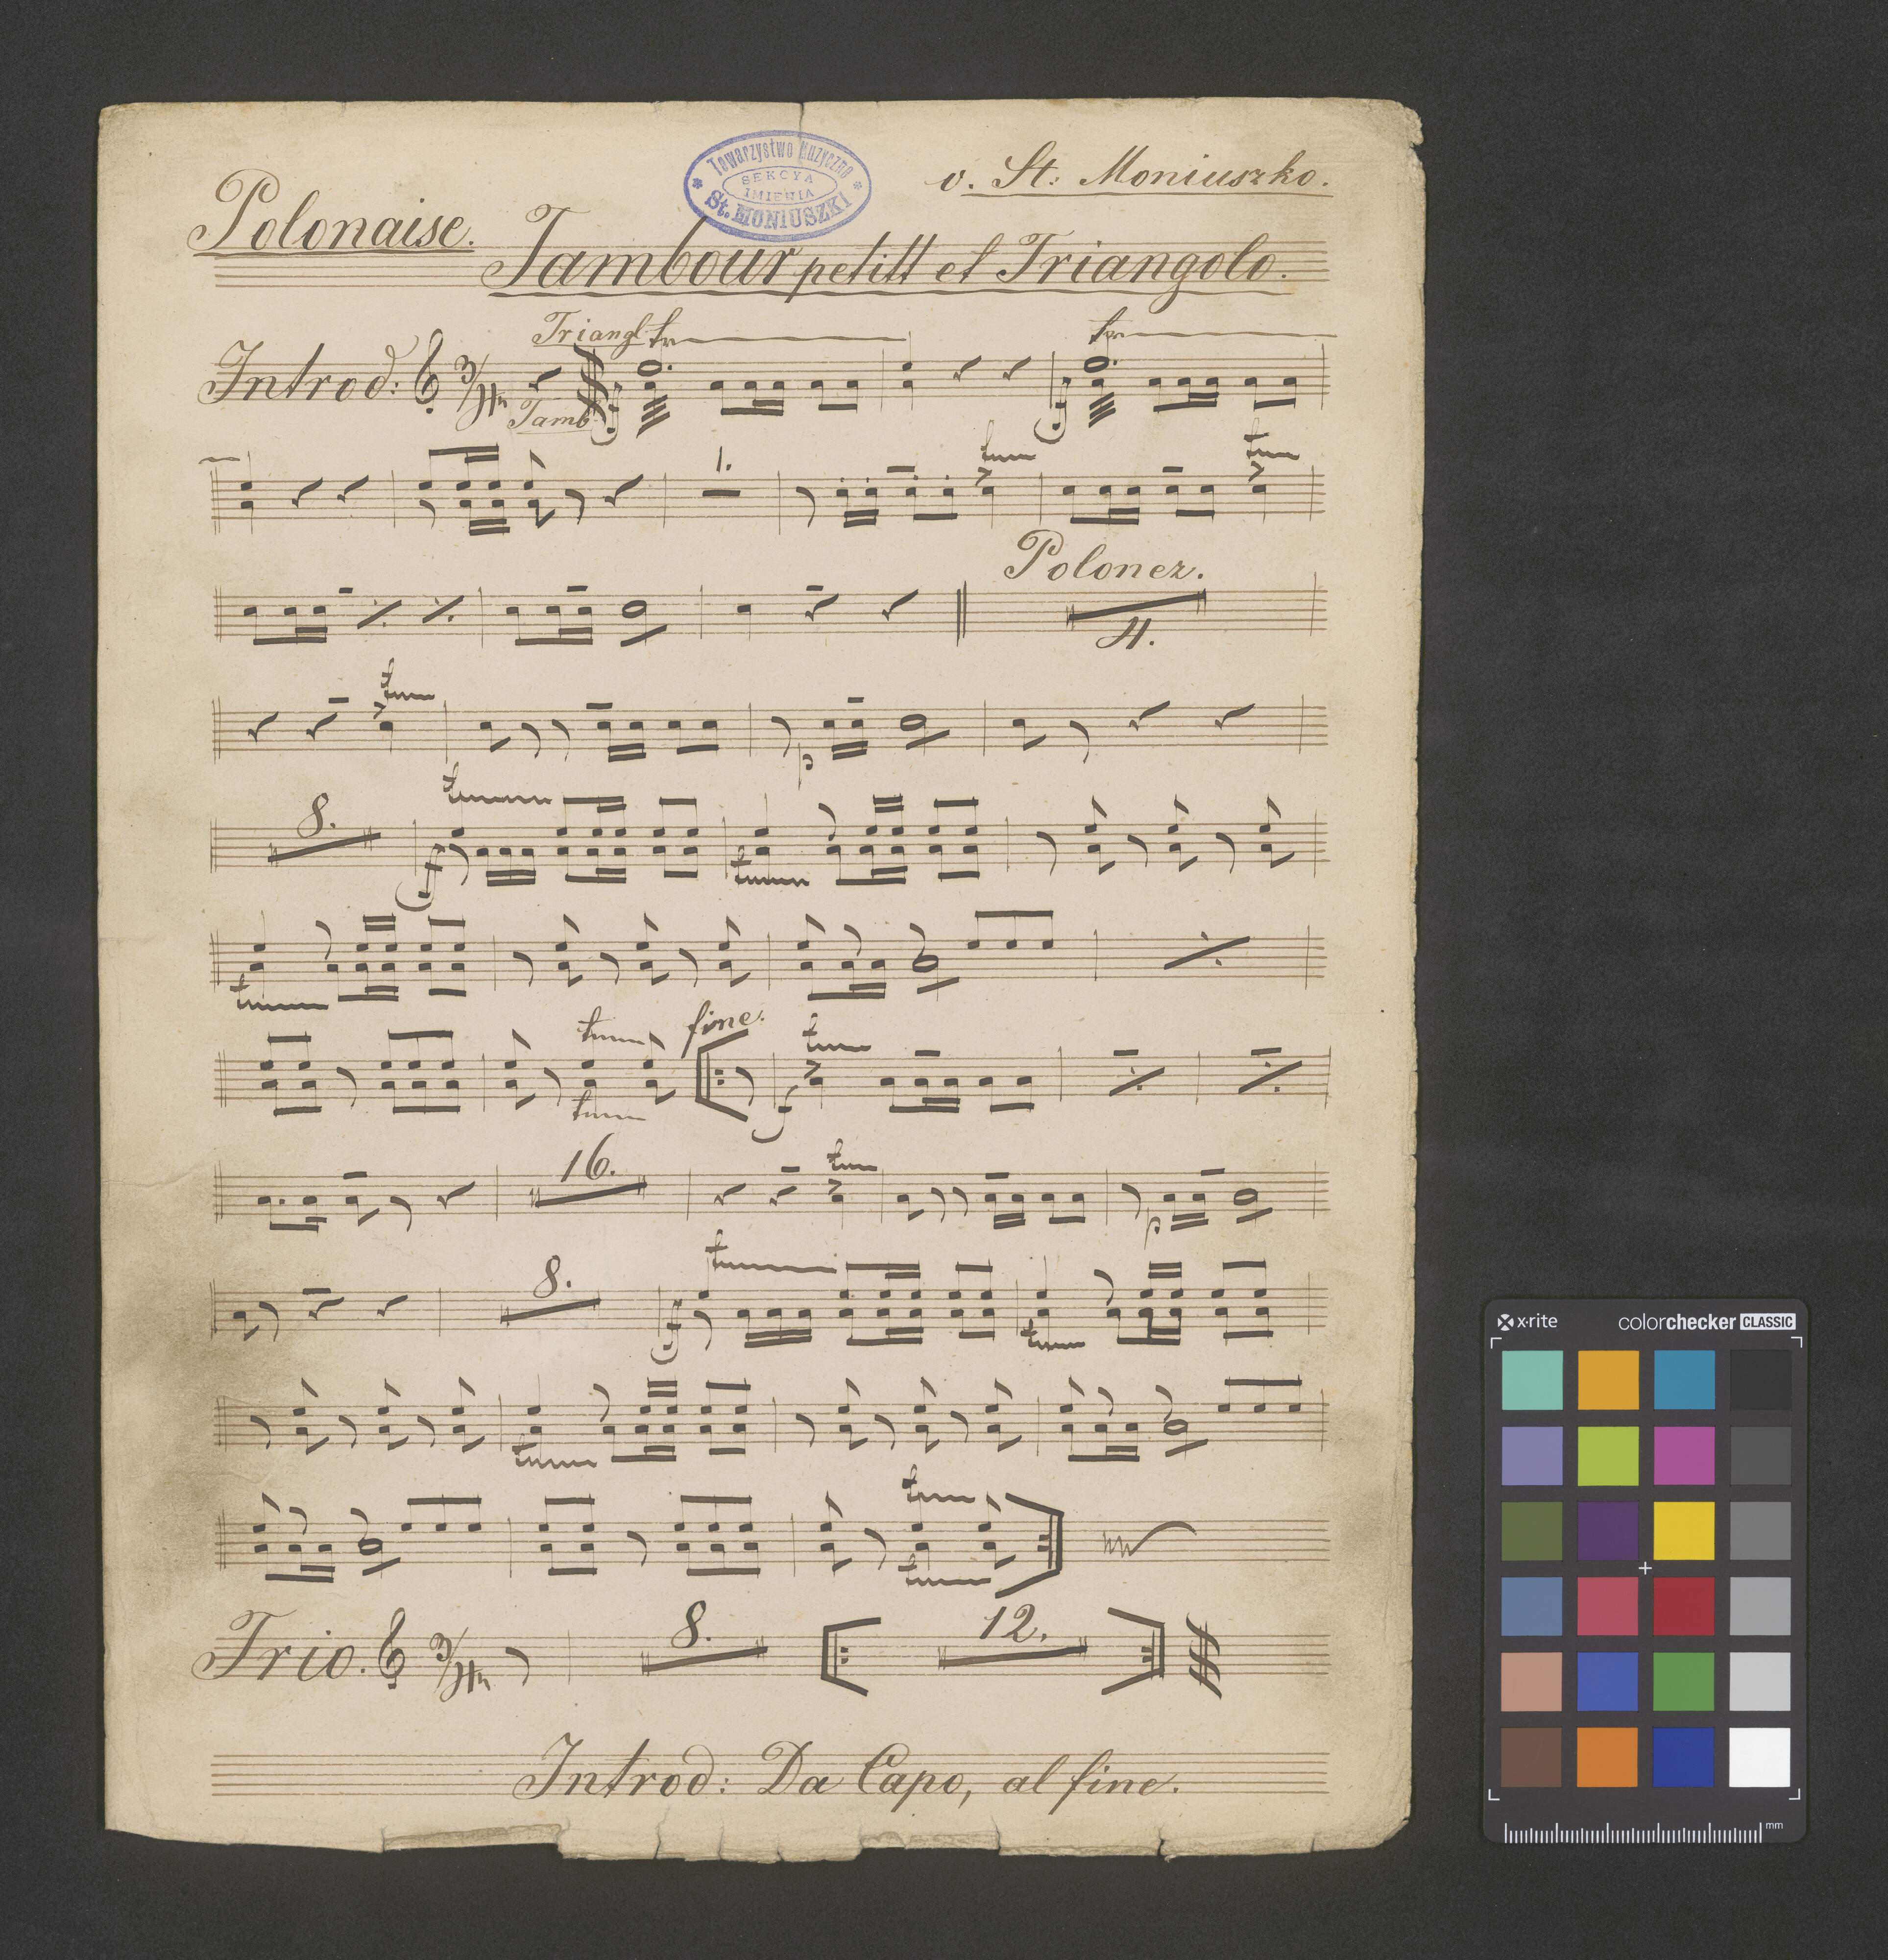 Towarzystwo Muzyczne
SEKCYA
IMIENIA
St. MONIUSZKI
v. St: Moniuszko.
Polonaise.
Tambour petitt et Triangolo.
Triangl tr
tr
Introd: 3/4
Tamb
f
f
1.
trm
trm
Polonez.
4.
trm
p
8.
trm
f
trm
trm
trm
fine.
trm
trm
f
16.
trm
p
8.
trm
f
trm
trm
trm
trm
Trio. 3/4
8.
12.
Introd: Da Capo, al fine.
x-rite
colorchecker CLASSIC
mm